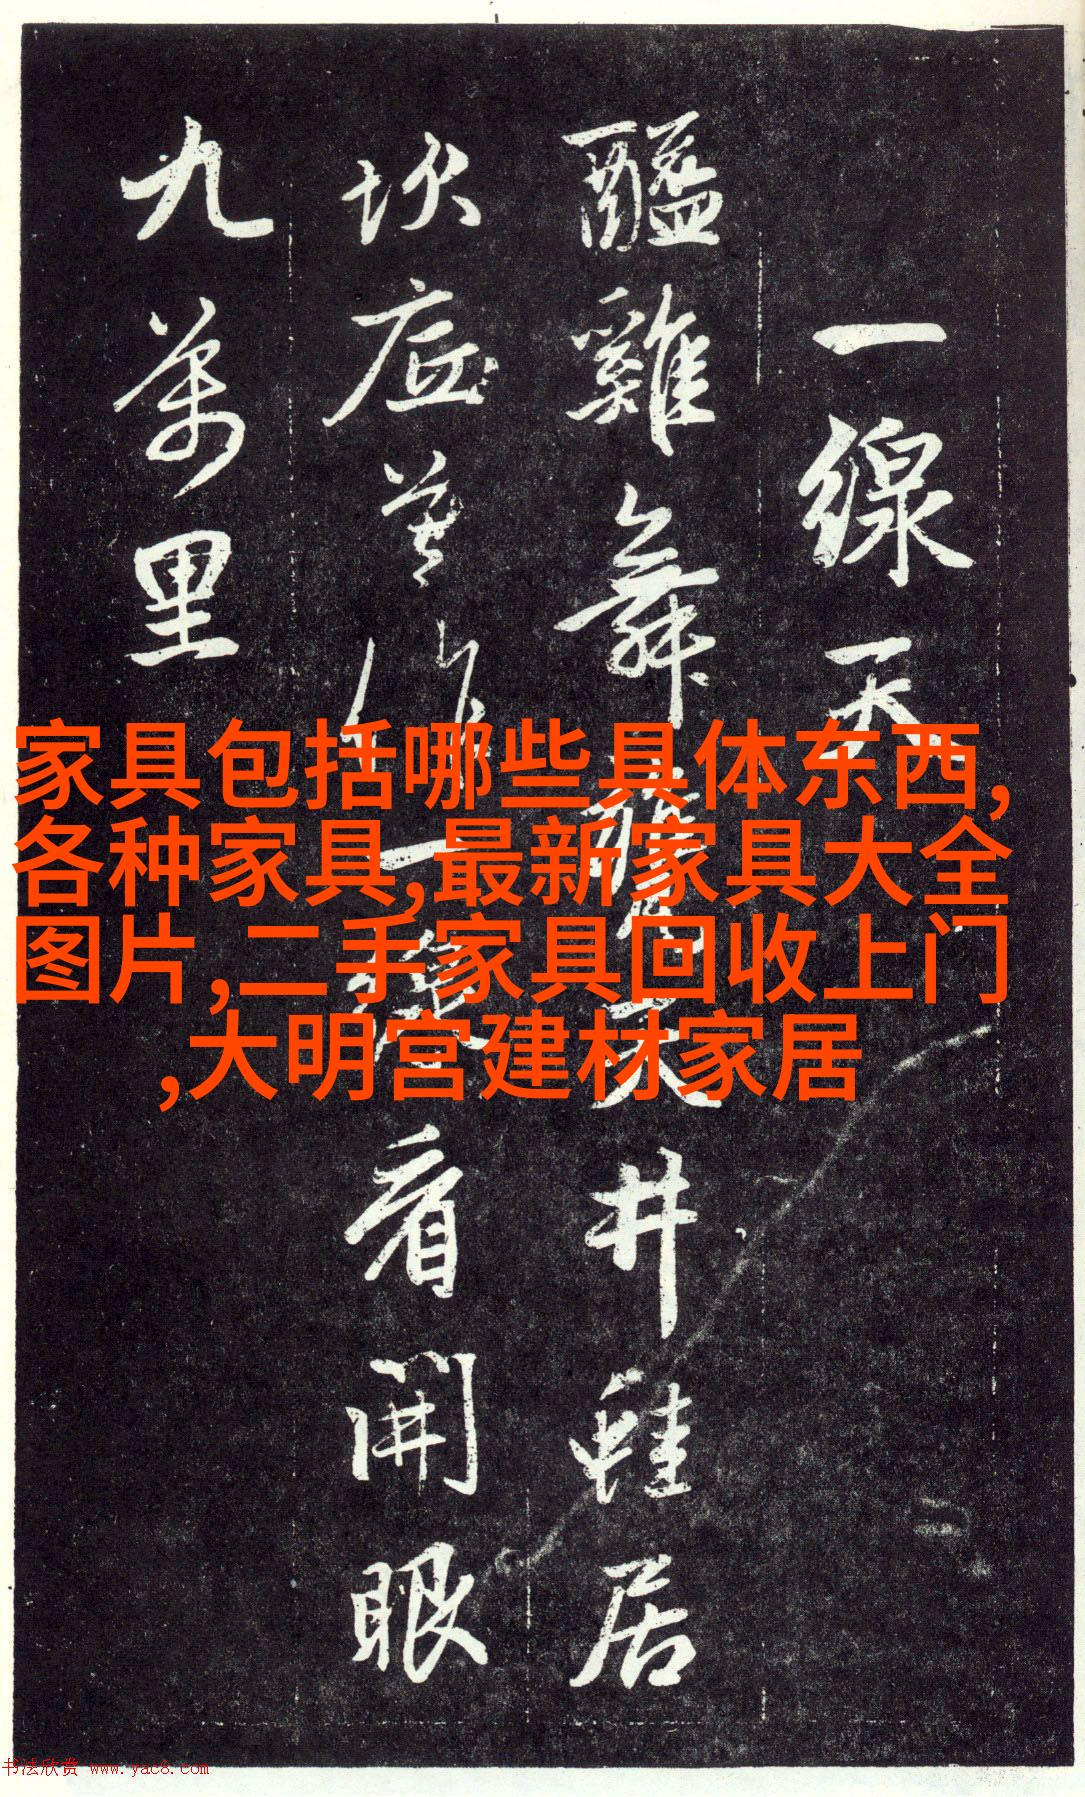 一線天
醯雞舞甕天井蛙居
坎底莫作一線看開眼
九萬里
家具包括哪些具体东西,
各种家具,最新家具大全
图片,二手家具回收上门
,大明宫建材家居
书法欣赏 www.yac8.com